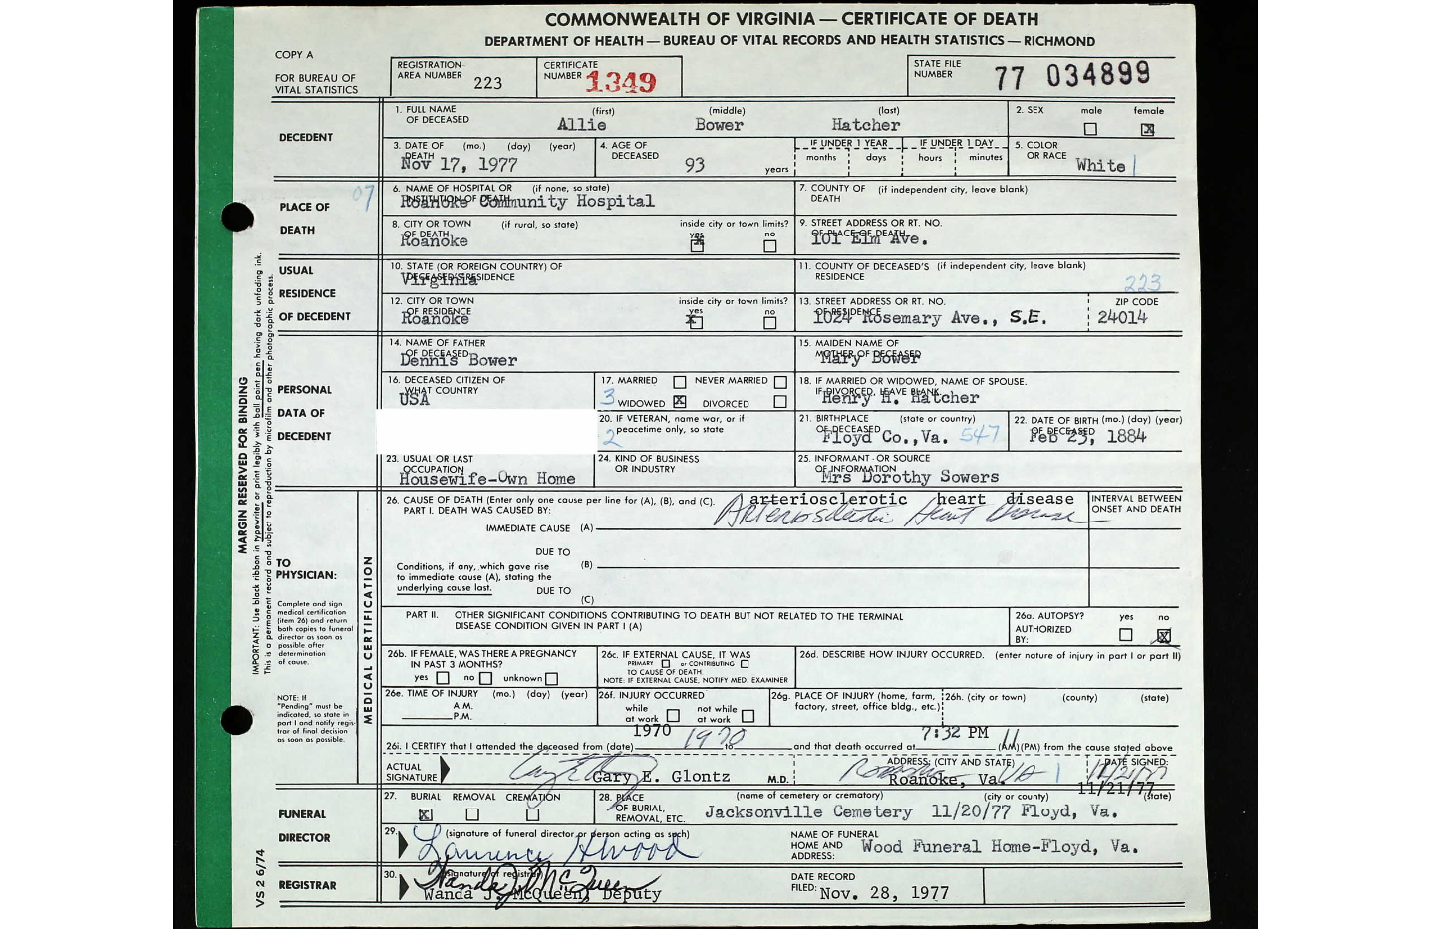 COMMONWEALTH OF VIRGINIA — CERTIFICATE OF DEATH
DEPARTMENT OF HEALTH — BUREAU OF VITAL RECORDS AND HEALTH STATISTICS — RICHMOND
COPY A
FOR BUREAU OF VITAL STATISTICS
REGISTRATION AREA NUMBER 223
CERTIFICATE NUMBER 1349
STATE FILE NUMBER 77 034899
DECEDENT
1. FULL NAME OF DECEASED (first) (middle) (last)
Allie Bower Hatcher
2. SEX male female
3. DATE OF DEATH (mo.) (day) (year)
Nov 17, 1977
4. AGE OF DECEASED 93 years
IF UNDER 1 YEAR months days
IF UNDER 1 DAY hours minutes
5. COLOR OR RACE White
PLACE OF DEATH
07
6. NAME OF HOSPITAL OR INSTITUTION OF DEATH (if none, so state)
Roanoke Community Hospital
7. COUNTY OF DEATH (if independent city, leave blank)
8. CITY OR TOWN OF DEATH (if rural, so state) inside city or town limits? yes no
Roanoke
9. STREET ADDRESS OR RT. NO. OF PLACE OF DEATH
101 Elm Ave.
USUAL RESIDENCE OF DECEDENT
10. STATE (OR FOREIGN COUNTRY) OF DECEASED'S RESIDENCE
Virginia
11. COUNTY OF DECEASED'S RESIDENCE (if independent city, leave blank)
223
12. CITY OR TOWN OF RESIDENCE inside city or town limits? yes no
Roanoke
13. STREET ADDRESS OR RT. NO. OF RESIDENCE
1024 Rosemary Ave., S.E.
ZIP CODE
24014
PERSONAL DATA OF DECEDENT
14. NAME OF FATHER OF DECEASED
Dennis Bower
15. MAIDEN NAME OF MOTHER OF DECEASED
Mary Bower
16. DECEASED CITIZEN OF WHAT COUNTRY
USA
17. MARRIED NEVER MARRIED
3 WIDOWED DIVORCED
18. IF MARRIED OR WIDOWED, NAME OF SPOUSE. IF DIVORCED, LEAVE BLANK
Henry H. Hatcher
20. IF VETERAN, name war, or if peacetime only, so state
2
21. BIRTHPLACE OF DECEASED (state or country)
Floyd Co., Va. 547
22. DATE OF BIRTH OF DECEASED (mo.) (day) (year)
Feb 23, 1884
23. USUAL OR LAST OCCUPATION
Housewife-Own Home
24. KIND OF BUSINESS OR INDUSTRY
25. INFORMANT - OR SOURCE OF INFORMATION
Mrs Dorothy Sowers
MARGIN RESERVED FOR BINDING
IMPORTANT: Use black ribbon in typewriter or print legibly with ball point pen having dark unfading ink.
This is a permanent record and subject to reproduction by microfilm and other photographic process.
TO PHYSICIAN:
Complete and sign medical certification (item 26) and return both copies to funeral director as soon as possible after determination of cause.
NOTE: If "Pending" must be indicated, so state in part I and notify registrar of final decision as soon as possible.
MEDICAL CERTIFICATION
26. CAUSE OF DEATH (Enter only one cause per line for (A), (B), and (C).
PART I. DEATH WAS CAUSED BY:
arteriosclerotic heart disease
Arteriosclerotic Heart Disease
INTERVAL BETWEEN ONSET AND DEATH
IMMEDIATE CAUSE (A)
DUE TO
Conditions, if any, which gave rise to immediate cause (A), stating the underlying cause last.
(B)
DUE TO
(C)
PART II. OTHER SIGNIFICANT CONDITIONS CONTRIBUTING TO DEATH BUT NOT RELATED TO THE TERMINAL DISEASE CONDITION GIVEN IN PART I (A)
26a. AUTOPSY? yes no
AUTHORIZED BY:
26b. IF FEMALE, WAS THERE A PREGNANCY IN PAST 3 MONTHS?
yes no unknown
26c. IF EXTERNAL CAUSE, IT WAS
PRIMARY or CONTRIBUTING
TO CAUSE OF DEATH
NOTE: IF EXTERNAL CAUSE, NOTIFY MED. EXAMINER
26d. DESCRIBE HOW INJURY OCCURRED. (enter nature of injury in part I or part II)
26e. TIME OF INJURY (mo.) (day) (year)
A.M.
P.M.
26f. INJURY OCCURRED
while at work not while at work
26g. PLACE OF INJURY (home, farm, factory, street, office bldg., etc.)
26h. (city or town) (county) (state)
1970 1970 7:32 PM
26i. I CERTIFY that I attended the deceased from (date) to and that death occurred at (AM) (PM) from the cause stated above
ACTUAL SIGNATURE
Gary E. Glontz M.D.
ADDRESS: (CITY AND STATE)
Roanoke, Va.
DATE SIGNED:
11/21/77
11/21/77
FUNERAL DIRECTOR
27. BURIAL REMOVAL CREMATION
28. PLACE OF BURIAL, REMOVAL, ETC. (name of cemetery or crematory) (city or county) (state)
Jacksonville Cemetery 11/20/77 Floyd, Va.
29. (signature of funeral director or person acting as such)
Laurence Atwood
NAME OF FUNERAL HOME AND ADDRESS: Wood Funeral Home-Floyd, Va.
REGISTRAR
30. (signature of registrar)
Wanda J. McQueen
Wanda J. McQueen, Deputy
DATE RECORD FILED: Nov. 28, 1977
VS 2 6/74